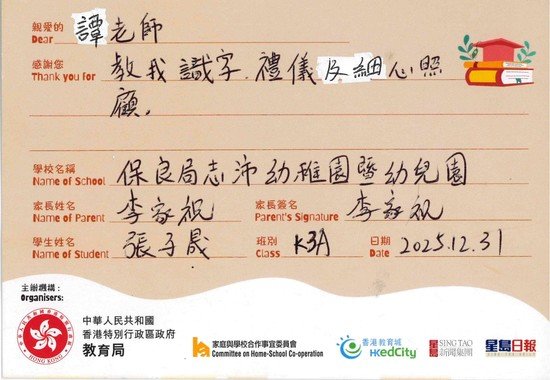 親愛的 譚老師
Dear
感謝您 教我識字、禮儀及細心照
Thank you for
顧。
學校名稱 保良局志沛幼稚園暨幼兒園
Name of School
家長姓名 李家祝 家長簽名 李家祝
Name of Parent Parent's Signature
學生姓名 張子晟 班別 K3A 日期 2025.12.31
Name of Student Class Date
主辦機構:
Organisers:
中華人民共和國
香港特別行政區政府
教育局
HONG KONG
家庭與學校合作事宜委員會
Committee on Home-School Co-operation
香港教育城
HKedCity
星島 SING TAO
新聞集團
星島日報